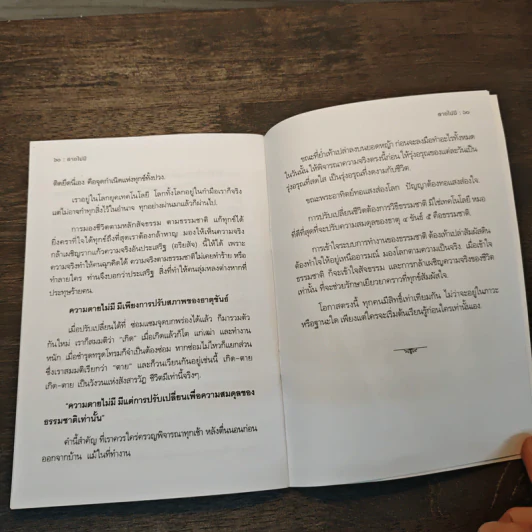 ๒๐ : ตายไม่มี
คิดยึดนี่เอง คือจุดกำเนิดแห่งทุกข์ทั้งปวง
เราอยู่ในโลกยุคเทคโนโลยี โลกทั้งโลกอยู่ในกำมือเราก็จริง
แต่ไม่อาจกำทุกสิ่งไว้ในอำนาจ ทุกอย่างผ่านมาแล้วก็ผ่านไป
การมองชีวิตตามหลักสัจธรรม ตามธรรมชาติ แก้ทุกข์ได้
ยิ่งคราที่ใจได้ทุกข์ถึงที่สุดเราต้องกล้าหาญ มองให้เห็นความจริง
กล้าเผชิญหน้ากับความจริงอันประเสริฐ (อริยสัจ) นี้ให้ได้ เพราะ
ความจริงทำให้คนฉุกคิดได้ ความจริงตามธรรมชาติไม่เคยทำร้าย หรือ
ทำลายใคร ท่านจึงบอกว่าประเสริฐ สิ่งที่ทำให้คนลุ่มหลงต่างหากที่
ประทุษร้ายตน
ความตายไม่มี มีเพียงการปรับสภาพของธาตุขันธ์
เมื่อปรับเปลี่ยนได้ที่ ซ่อมแซมจุดบกพร่องได้แล้ว ก็มารวมตัว
กันใหม่ เราก็สมมติว่า "เกิด" เมื่อเกิดแล้วก็โต แก่เฒ่า และทำงาน
หนัก เมื่อชำรุดทรุดโทรมก็จำเป็นต้องซ่อม หากซ่อมไม่ไหวก็แยกส่วน
ซึ่งเราสมมติเรียกว่า "ตาย" และก็วนเวียนกันอยู่เช่นนี้ เกิด-ตาย
เกิด-ตาย เป็นวังวนแห่งสังสารวัฏ ชีวิตมีเท่านี้จริงๆ
"ความตายไม่มี มีแต่การปรับเปลี่ยนเพื่อความสมดุลของ
ธรรมชาติเท่านั้น"
คำนี้สำคัญ ที่เราควรใคร่ครวญพิจารณาทุกเช้า หลังตื่นนอนก่อน
ออกจากบ้าน แม้ในที่ทำงาน
ตายไม่มี : ๒๑
ขณะที่ย่ำเท้าเปล่าลงบนยอดหญ้า ก่อนจะลงมือทำอะไรทั้งหมด
ในวันนั้น ให้พิจารณาความจริงตรงนี้ก่อน ให้รุ่งอรุณของแต่ละวันเป็น
รุ่งอรุณที่สดใส เป็นรุ่งอรุณที่งดงามกับชีวิต
ขณะพระอาทิตย์ทอแสงส่องโลก ปัญญาต้องทอแสงส่องใจ
การปรับเปลี่ยนชีวิตต้องการวิธีธรรมชาติ มิใช่เทคโนโลยี หมอ
ที่ดีที่สุดที่จะปรับความสมดุลของธาตุ ๔ ขันธ์ ๕ คือธรรมชาติ
การเข้าใจระบบการทำงานของธรรมชาติ ต้องเท้าเปล่าสัมผัสดิน
ต้องทำใจให้อยู่เหนืออารมณ์ มองโลกตามความเป็นจริง เมื่อเข้าใจ
ธรรมชาติ ก็จะเข้าใจสัจธรรม และการกล้าเผชิญความจริงของชีวิต
เท่านั้น ที่จะช่วยรักษาเยียวยาคราวที่ทุกข์สัมผัสใจ
โอกาสตรงนี้ ทุกคนมีสิทธิ์เท่าเทียมกัน ไม่ว่าจะอยู่ในภาวะ
หรือฐานะใด เพียงแต่ใครจะเริ่มต้นเรียนรู้ก่อนใครเท่านั้นเอง